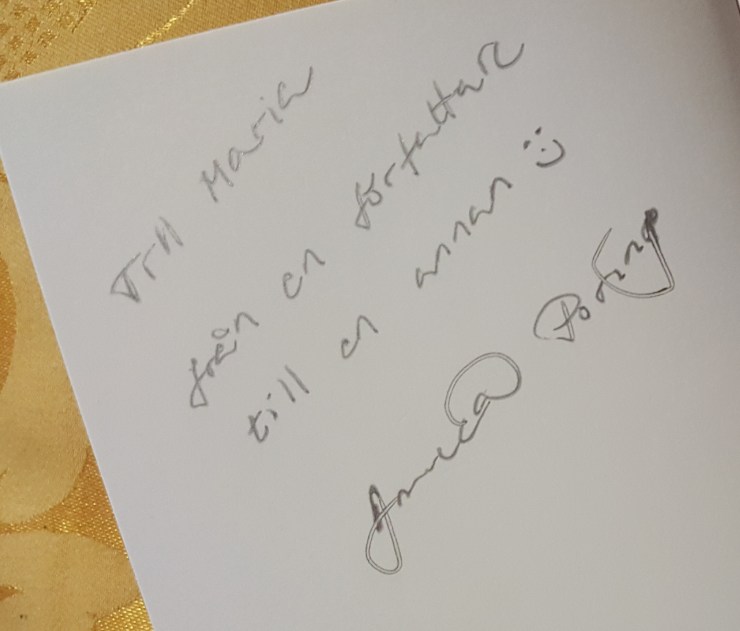 Till Maria
från en författare
till en annan :)